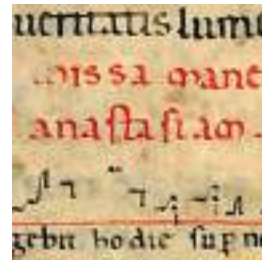 ueritatis lume
missa mane
anastasiam.
gebit hodie sup n